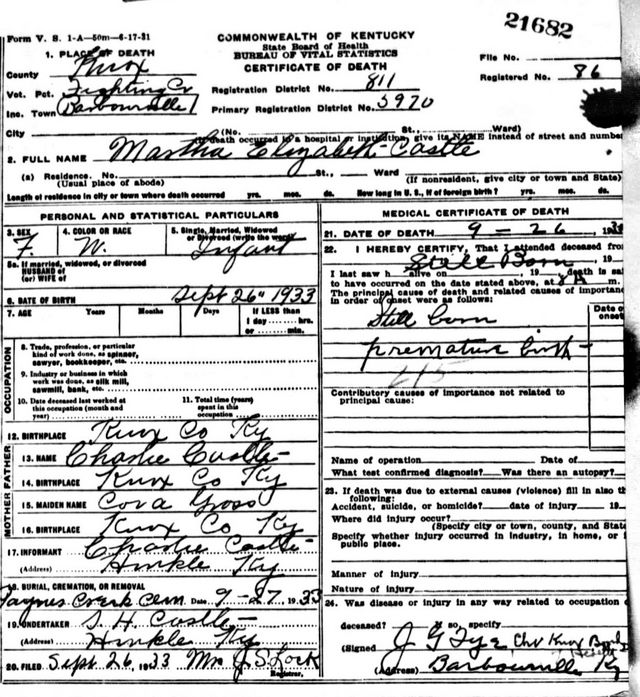 21682
Form V. S. 1-A—50m—6-17-31
COMMONWEALTH OF KENTUCKY
State Board of Health
BUREAU OF VITAL STATISTICS
CERTIFICATE OF DEATH
1. PLACE OF DEATH
County Knox
Vot. Pct. Fighting Cr
Inc. Town Barbourville
Registration District No. 811
Primary Registration District No. 5970
File No.
Registered No. 86
City (No. St., Ward)
(If death occurred in a hospital or institution, give its NAME instead of street and number
2. FULL NAME Martha Elizabeth Castle
(a) Residence. No. St., Ward
(Usual place of abode) (If nonresident, give city or town and State)
Length of residence in city or town where death occurred yrs. mos. ds. How long in U. S., if of foreign birth? yrs. mos. ds.
PERSONAL AND STATISTICAL PARTICULARS
3. SEX F.
4. COLOR OR RACE W.
5. Single, Married, Widowed
or Divorced (write the word) Infant
5a. If married, widowed, or divorced
HUSBAND of
(or) WIFE of
6. DATE OF BIRTH Sept 26" 1933
7. AGE Years Months Days If LESS than
1 day hrs.
or min.
OCCUPATION
8. Trade, profession, or particular
kind of work done, as spinner,
sawyer, bookkeeper, etc.
9. Industry or business in which
work was done, as silk mill,
sawmill, bank, etc.
10. Date deceased last worked at
this occupation (month and
year)
11. Total time (years)
spent in this
occupation
12. BIRTHPLACE Knox Co Ky
FATHER
13. NAME Charlie Castle
14. BIRTHPLACE Knox Co Ky
MOTHER
15. MAIDEN NAME Cora Gross
16. BIRTHPLACE Knox Co Ky
17. INFORMANT Charlie Castle
(Address) Hinkle Ky
18. BURIAL, CREMATION, OR REMOVAL
Paynes Creek Cem Date 9-27, 1933
19. UNDERTAKER T. H. Castle
(Address) Hinkle Ky
20. FILED Sept 26, 1933 Mrs J. S. Lock
Registrar.
MEDICAL CERTIFICATE OF DEATH
21. DATE OF DEATH 9-26, 193
22. I HEREBY CERTIFY, That I attended deceased from
Still Born, 19
I last saw h alive on , 19 death is sa
to have occurred on the date stated above, at 8 A m.
The principal cause of death and related causes of importance
in order of onset were as follows:
Date of
onset
Still born
premature birth
Contributory causes of importance not related to
principal cause:
Name of operation Date of
What test confirmed diagnosis? Was there an autopsy?
23. If death was due to external causes (violence) fill in also th
following:
Accident, suicide, or homicide? date of injury 19
Where did injury occur?
(Specify city or town, county, and State
Specify whether injury occurred in industry, in home, or i
public place.
Manner of injury
Nature of injury
24. Was disease or injury in any way related to occupation o
deceased? If so, specify
(Signed J G Tye, Chr Knox Bord
Health
(Address) Barbourville Ky